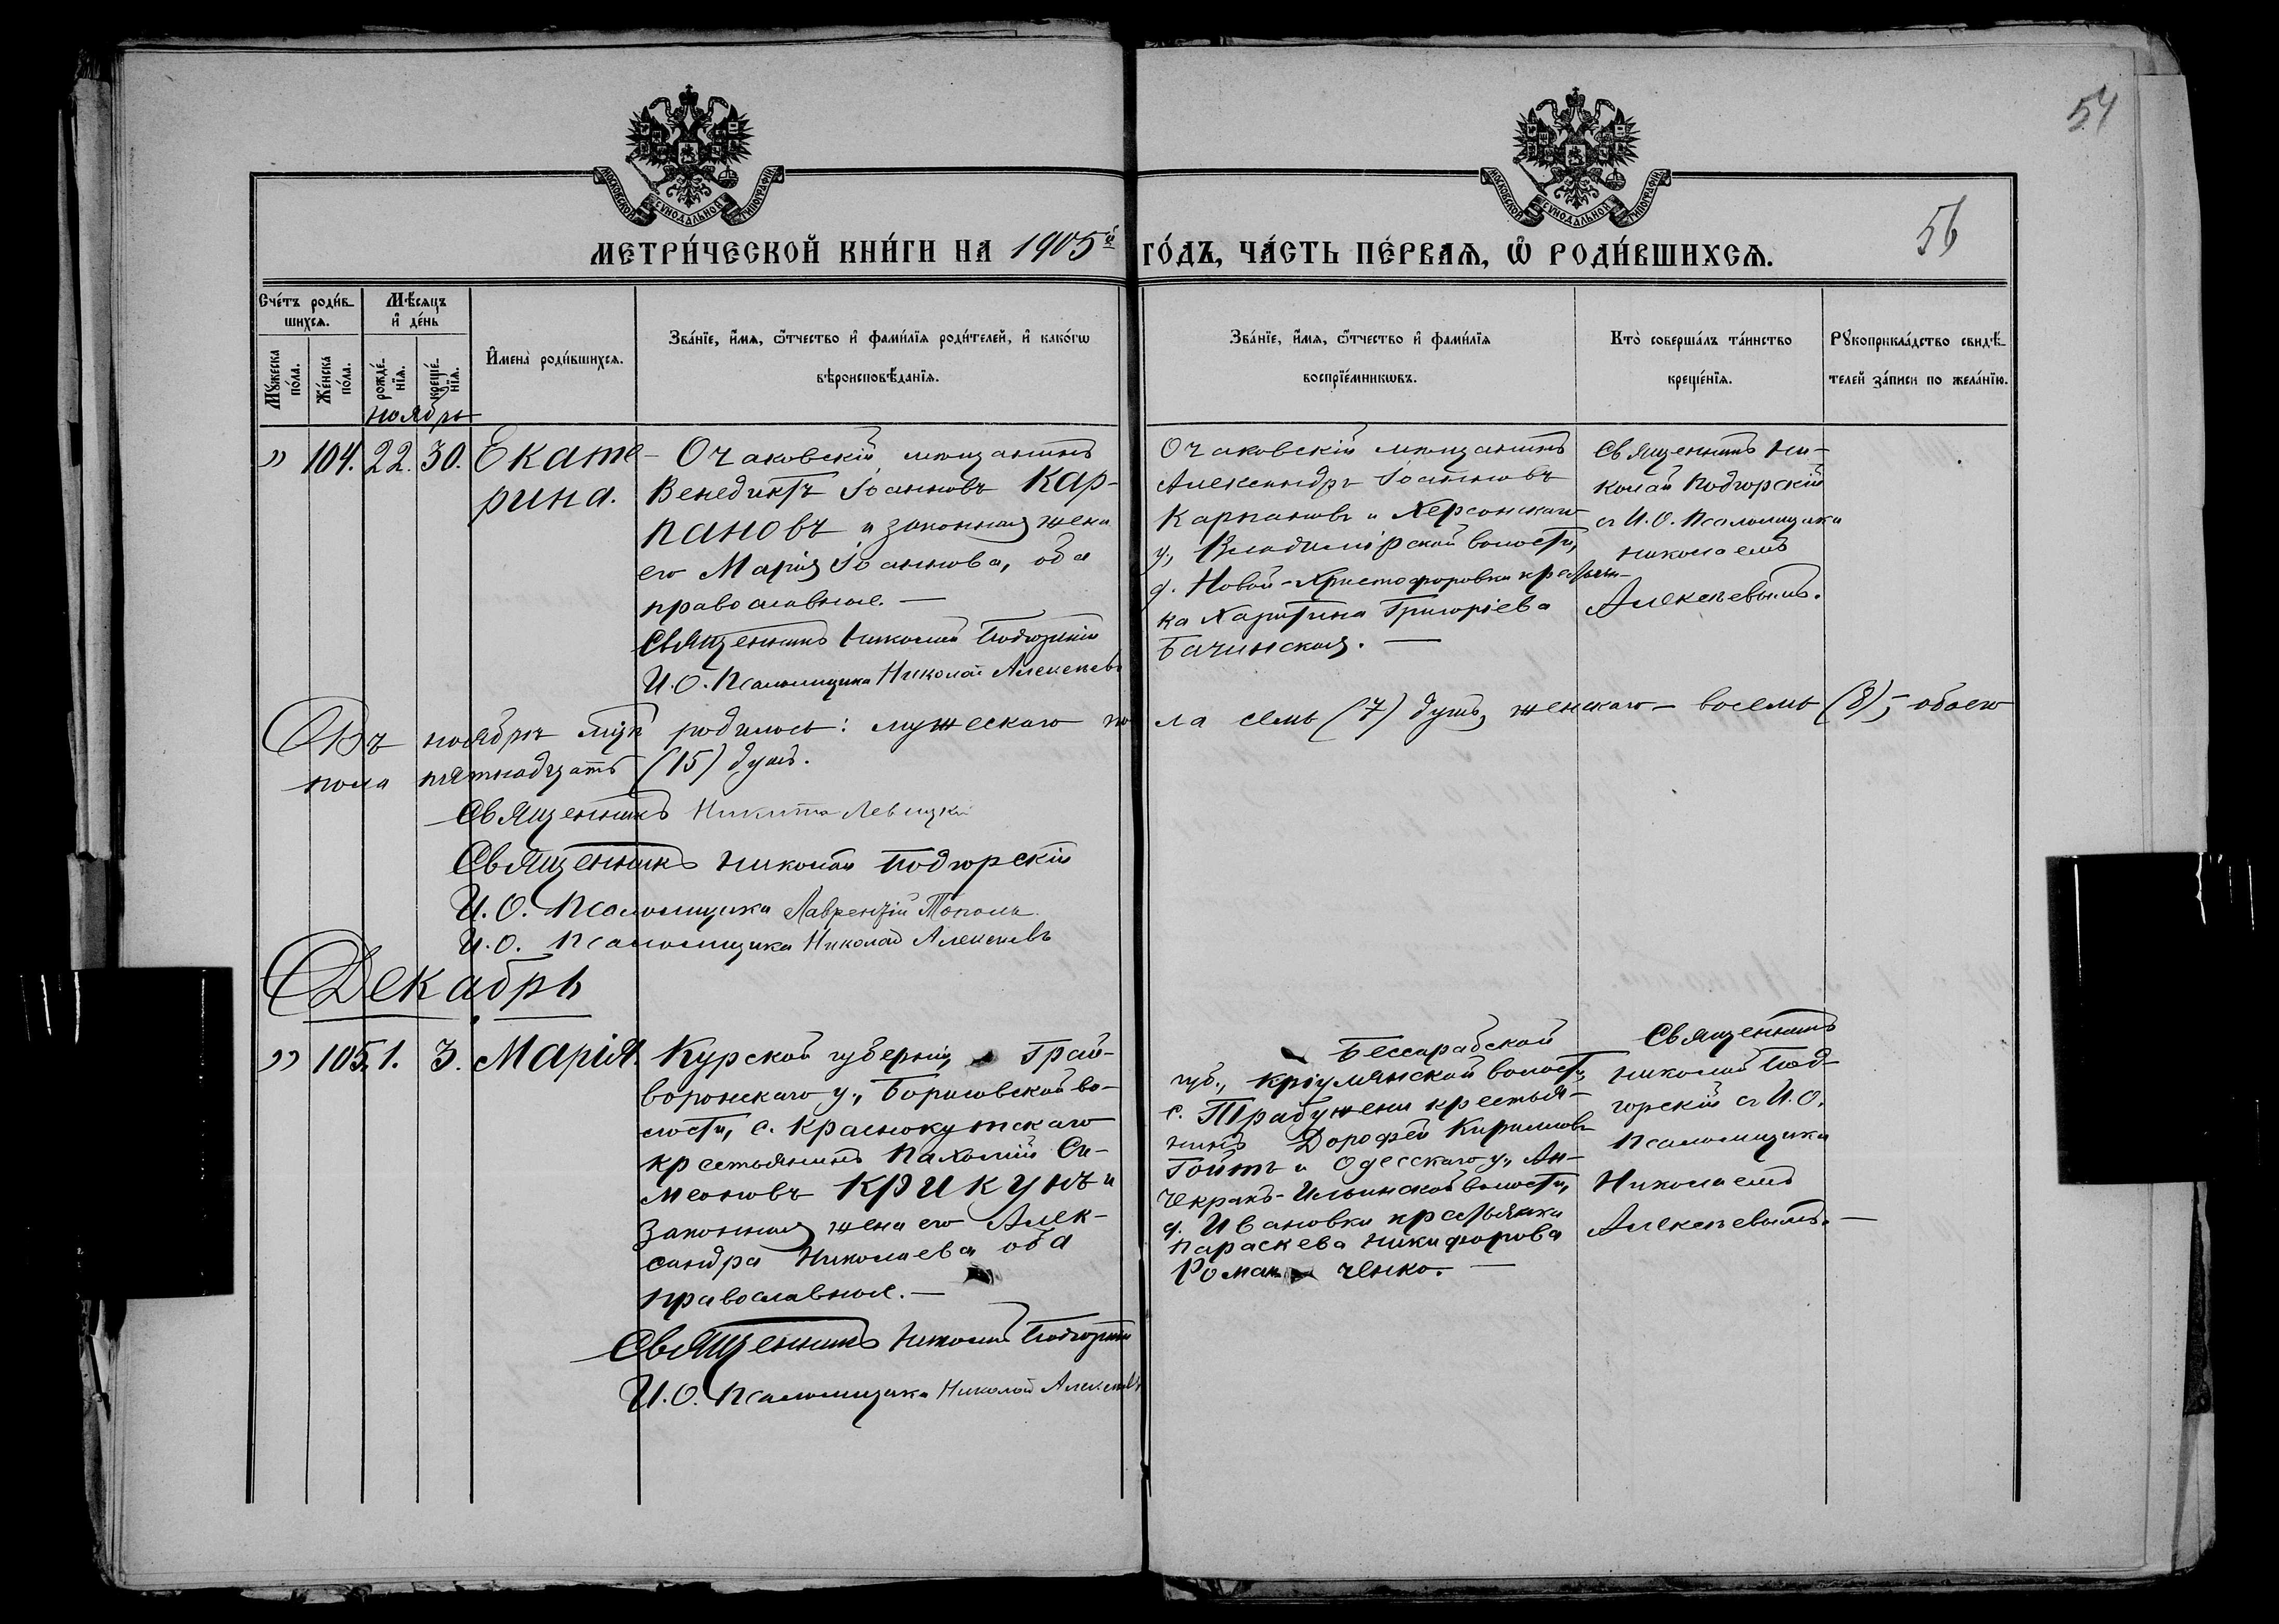 54
56
МОСКОВСКОЙ СѴНОДАЛЬНОЙ ТИПОГРАФІИ
МОСКОВСКОЙ СѴНОДАЛЬНОЙ ТИПОГРАФІИ
МЕТРИ́ЧЕСКОЙ КНИ́ГИ НА 1905й ГО́ДЪ, ЧА́СТЬ ПЕ́РВАѦ, Ѡ҆ РОДИ́ВШИХСѦ.
Сче́тъ роди́в-
шихсѧ.
Мꙋ́жеска по́ла.
Же́нска по́ла.
Мѣ́сѧцъ
и҆ де́нь
рожде́-
нїѧ.
креще́-
нїѧ.
И҆мена̀ роди́вшихсѧ.
Зва́нїе, и҆́мѧ, ѻ҆́тчество и҆ фами́лїѧ роди́телей, и҆ како́гѡ
вѣроисповѣ́данїѧ.
Зва́нїе, и҆́мѧ, ѻ҆́тчество и҆ фами́лїѧ
воспрїе́мникѡвъ.
Кто̀ соверша́лъ та́инство
креще́нїѧ.
Рꙋкоприкла́дство свидѣ́-
телей за́писи по жела́нїю.
ноябрь
" 104. 22. 30. Екате-
рина.
Очаковскій мѣщанинъ
Венедиктъ Іоанновъ Кар-
пановъ и законная жена
его Марія Іоаннова, оба
православные. —
Священникъ Николай Подгорскій
И. О. Псаломщика Николай Алексѣевъ
Очаковскій мѣщанинъ
Александръ Іоанновъ
Карпановъ и Херсонскаго
у., Владимірской волости,
д. Новой-Христофоровки крестьян-
ка Харитина Григоріева
Бачинская. —
Священникъ Ни-
колай Подгорскій
съ И. О. Псаломщика
Николаемъ
Алексѣевымъ.
Въ ноябрѣ мцѣ родилось: мужескаго по ла семь (7) душъ, женскаго — восемь (8), — обоего
пола пятнадцать (15) душъ.
Священникъ Никита Левицкій
Священникъ Николай Подгорскій
И. О. Псаломщика Лаврентій Тополь
И. О. Псаломщика Николай Алексѣевъ
Декабрь
" 105. 1. 3. Марія.
Курской губерніи, Грай-
воронскаго у., Борисовской во-
лости, с. Краснокутскаго
крестьянинъ Пахомій Си-
меоновъ Крикунъ и
законная жена его Алек-
сандра Николаева оба
православные. —
Священникъ Николай Подгорскій
И. О. Псаломщика Николай Алексѣевъ
Бессарабской
губ., Кріулянской волости,
с. Трабужени крестья-
нинъ Дорофей Кирилловъ
Гойтъ и Одесскаго у., Ан-
чекракъ-Ильинской волости,
д. Ивановки крестьянка
Параскева Никифорова
Роман ченко. —
Священникъ
Николай Под-
горскій съ И. О.
Псаломщика
Николаемъ
Алексѣевымъ. —